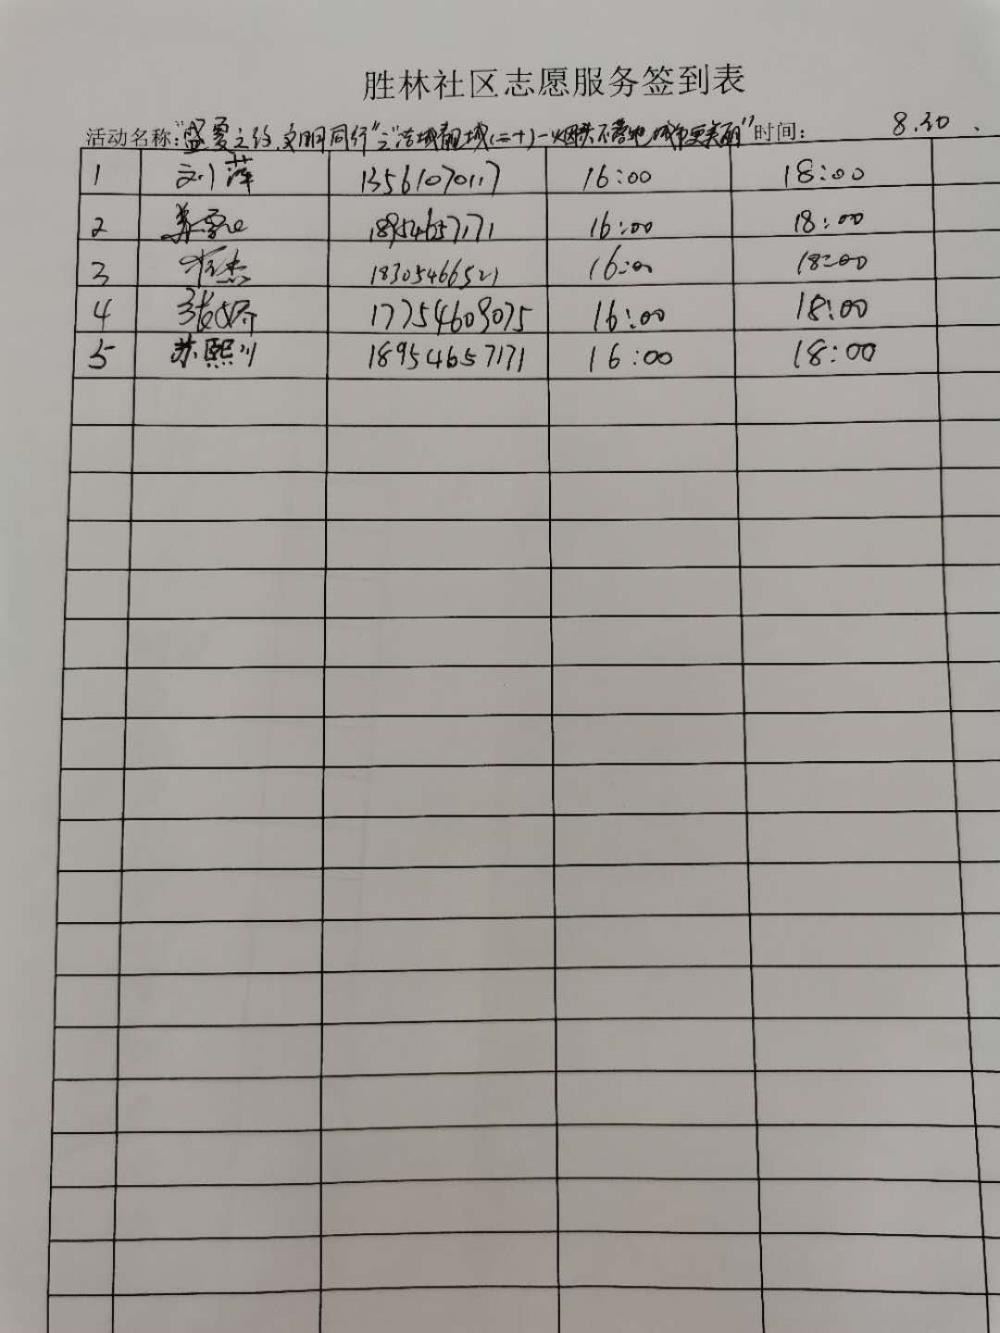 胜林社区志愿服务签到表
活动名称:"盛夏之约,文明同行"之"洁城靓城(二十)—烟头不落地,城市更美丽"时间: 8.30.
1 刘萍 13561070117 16:00 18:00
2 18954657171 16:00 18:00
3 杰 18305466521 16:00 18:00
4 张娇 17754609075 16:00 18:00
5 苏熙川 18954657171 16:00 18:00